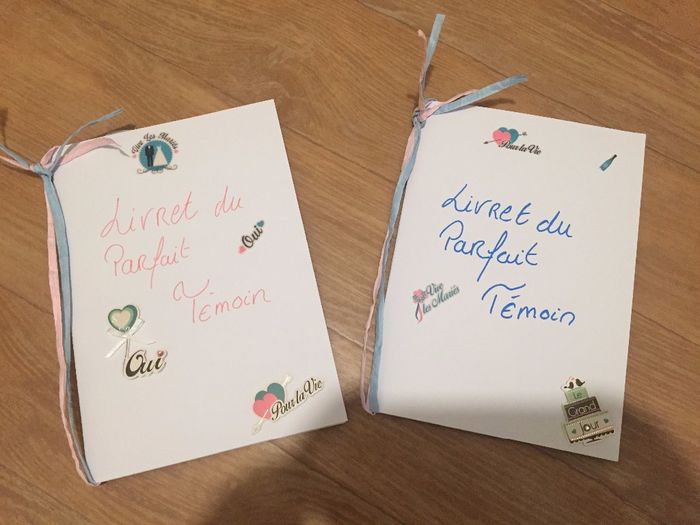 Vive Les Mariés
Livret du
Parfait
Témoin
Oui
Oui
Pour la Vie
Pour la Vie
Livret du
Parfait
Témoin
Vive
les Mariés
Le
Grand
Jour